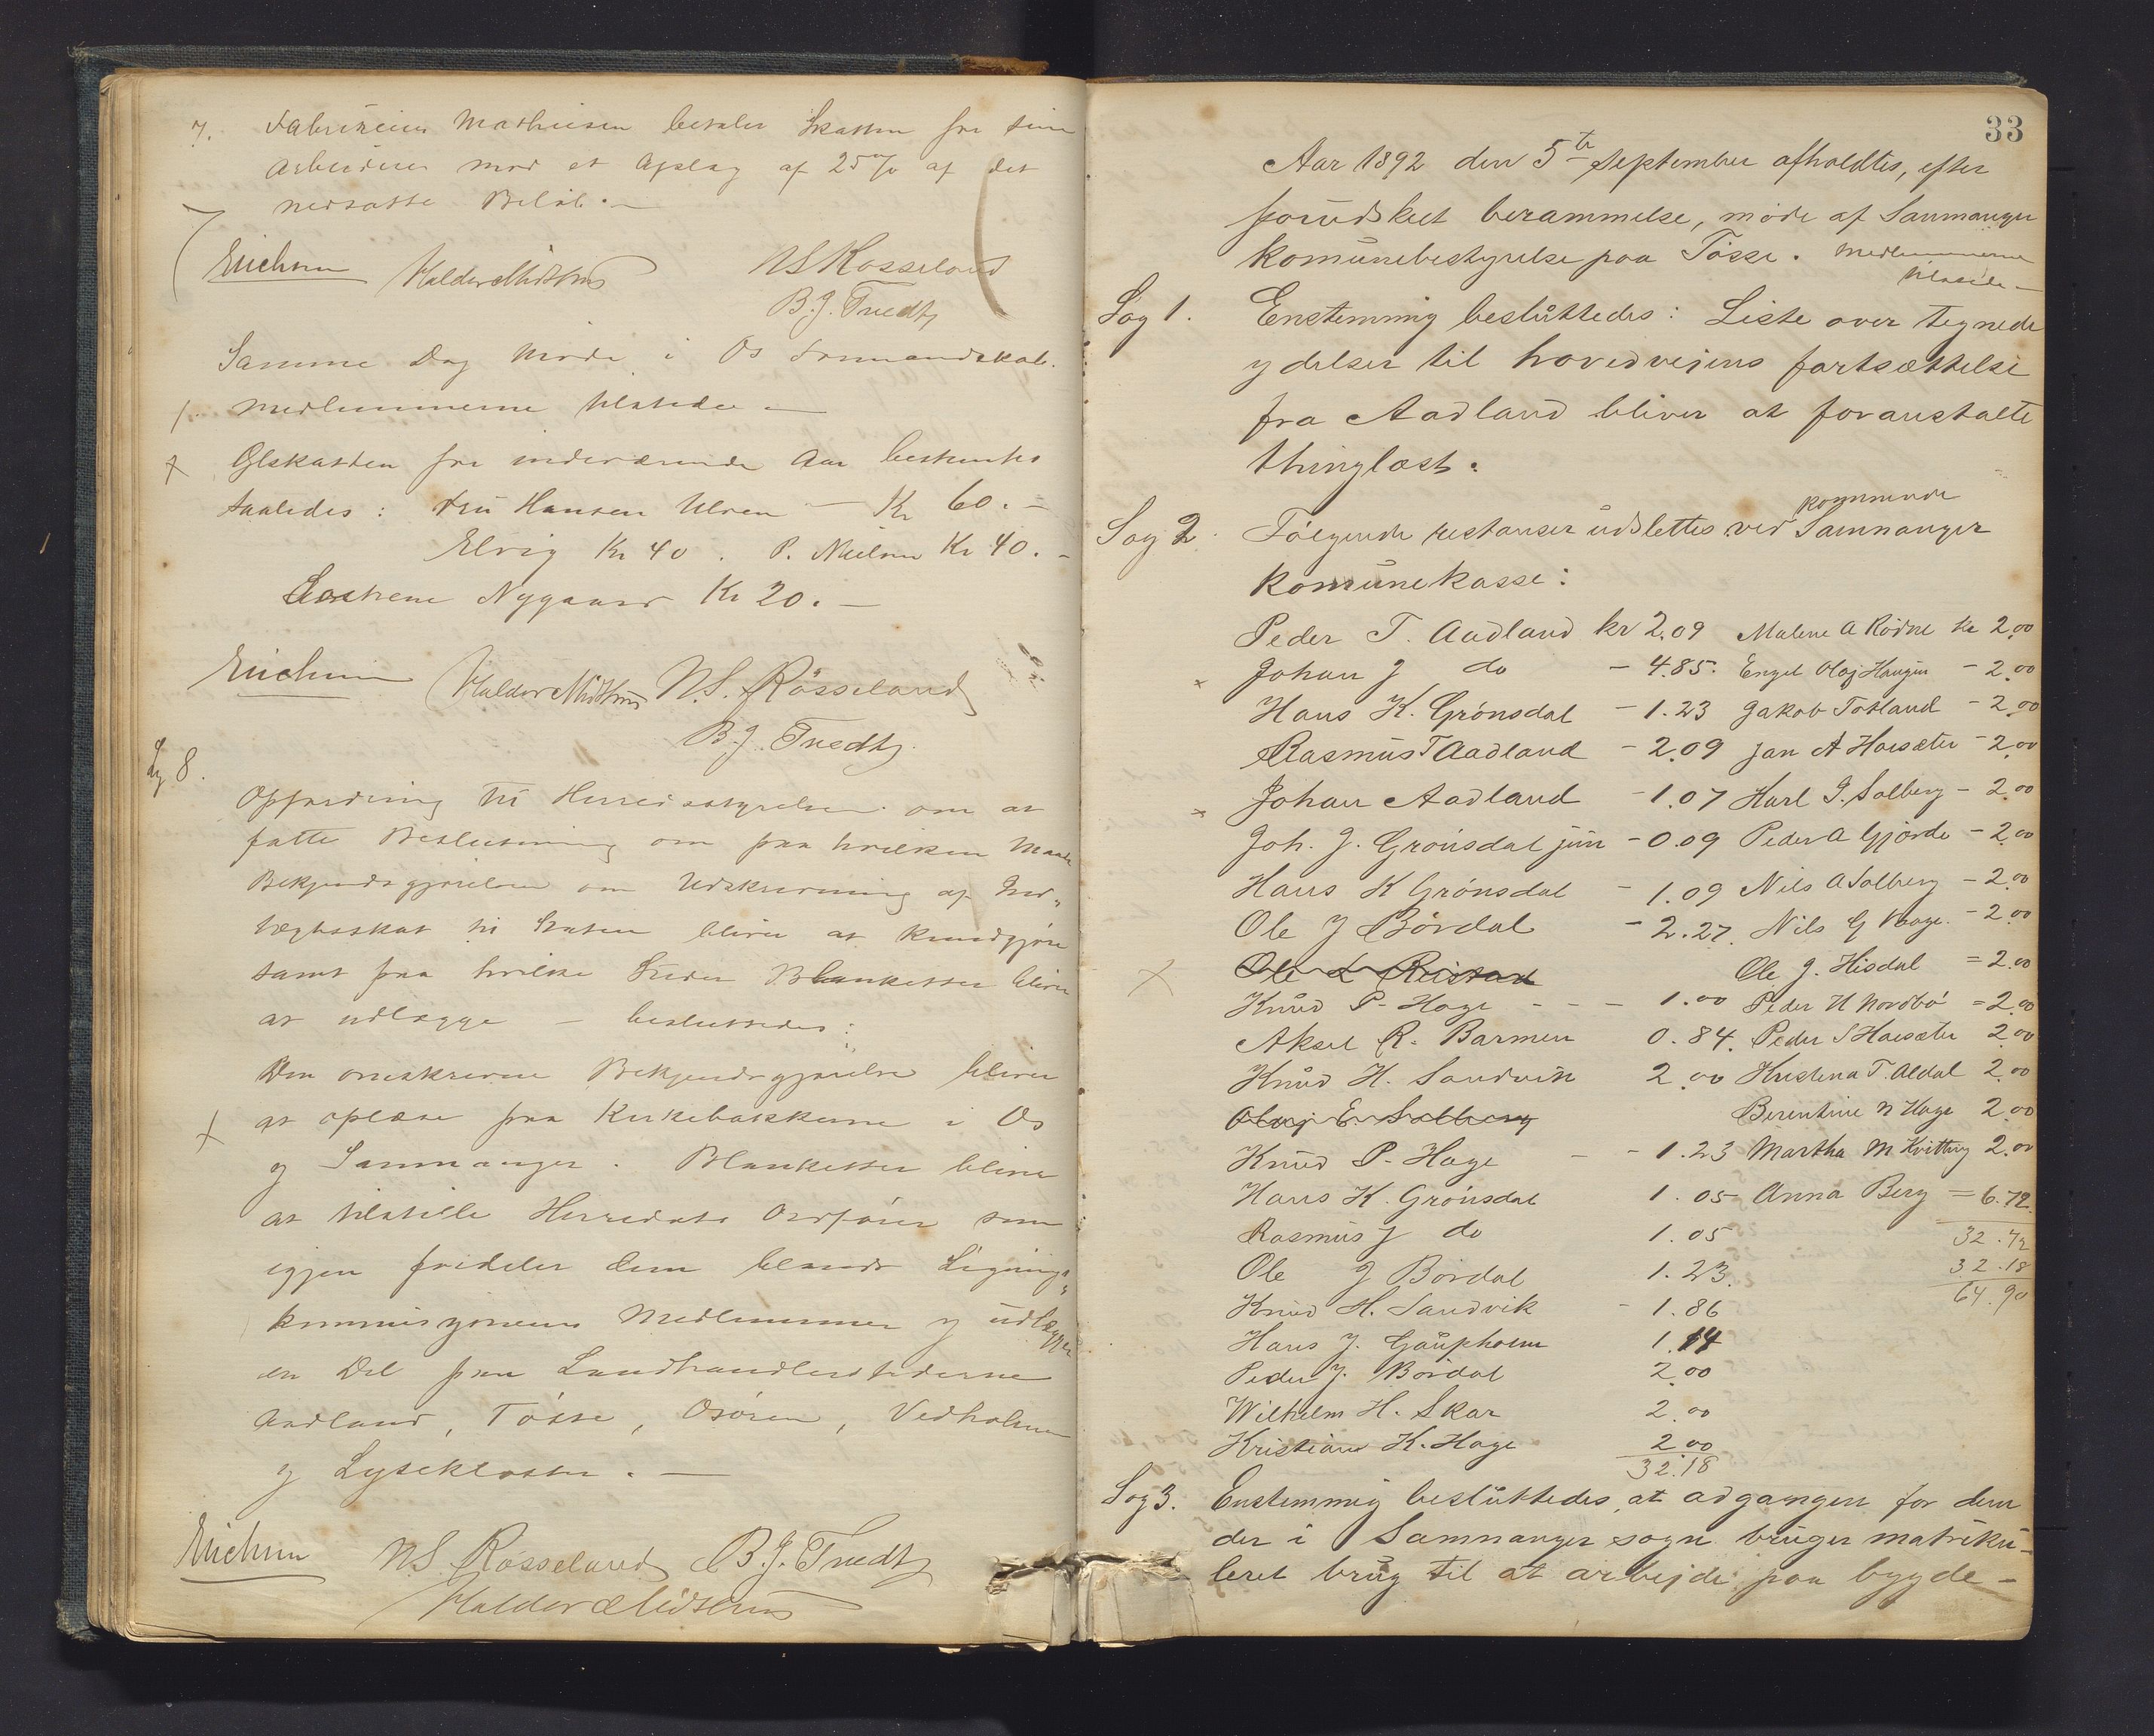 7. Fabrikeier Mathiesen betaler Skatten for sine
Arbeidere mod et Afslag af 25% af det
nedsatte Beløb. —
Erichsen Haldor Midthus NS Røsseland
B. J. Tvedt
Samme Dag Møde i Os Formandskab.
Medlemmerne tilstede —
Ølskatten for indeværende Aar bestemtes
saaledes: Fru Hansen Ulven — Kr 60. —
Elvig Kr 40. P. Nielsen Kr 40. —
Nygaard Kr 20. —
Erichsen Haldor Midthus N.S. Røsseland
B. J. Tvedt
Sag 8.
Opfordring til Herredsstyrelsen om at
fatte Beslutning om paa hvilken Maade
Bekjendtgjørelsen om Udskrivning af Ind„
tægtsskat til Staten bliver at kundgjøre
samt paa hvilke Steder Blanketter bliver
at udlægge — besluttedes:
Den omskrevne Bekjendtgjørelse bliver
at oplæse paa Kirkebakkerne i Os
og Samnanger. Blanketter bliver
at tilstille Herredets Ordfører som
igjen fordeler dem blandt Lignings„
kommisjonens Medlemmer og udlægger
en Del paa Landhandlerstederne
Aadland, Tøsse, Osøren, Vedholmen
og Lysekloster. —
Erichsen NS. Røsseland B. J. Tvedt
Haldor Midthus
33
Aar 1892 den 5te September afholdtes, efter
forudskeet berammelse, møde af Samnanger
komunebestyrelse paa Tøsse. Medlemmerne
tilstede —
Sag 1. Enstemmig besluttedes: Liste over tegnede
ydelser til hovedvejens fortsættelse
fra Aadland bliver at foranstalte
thinglæst.
kommende
Sag 2. Følgende restanser udslettes ved Samnanger
komunekasse:
Peder T. Aadland kr 2.09 Malene A Rødne kr 2.00
Johan J do — 4.85. Engel Olaj Haugen — 2.00
Hans K. Grønsdal — 1.23 Jakob Totland — 2.00
Rasmus T Aadland — 2.09 Jan A Haesæter — 2.00
Johan Aadland — 1.07 Karl J. Solberg — 2.00
Joh. J. Grønsdal jun — 0.09 Peder A Gjørde — 2.00
Hans K Grønsdal — 1.09 Nils A Solberg — 2.00
Ole J Børdal — 2.27. Nils G Hage. — 2.00
Ole L Reistad Ole J. Hisdal = 2.00
Knud P. Hage - - - 1.00 Peder H Nordbø = 2.00
Aksel R. Barmen 0.84. Peder S Haesæter 2.00
Knud H. Sandvin 2.00 Kristena T. Aldal 2.00
Olaj E. Solberg Berentine N Hage 2.00
Knud P. Hage - - 1.23 Martha M Kvitting 2.00
Hans K. Grønsdal 1.05 Anna Berg = 6.72.
Rasmus J do 1.05 32.72
Ole J Børdal 1.23. 32.18
Knud H. Sandvik — 1.86 64.90
Hans J. Gaupholm 1.14
Peder J. Børdal 2.00
Wilhelm H. Skar 2.00
Kristian K. Hage 2.00
32.18
Sag 3. Enstemmig besluttedes, at adgangen for dem
der i Samnanger sogn bruger matriku-
leret brug til at arbejde paa bygde-